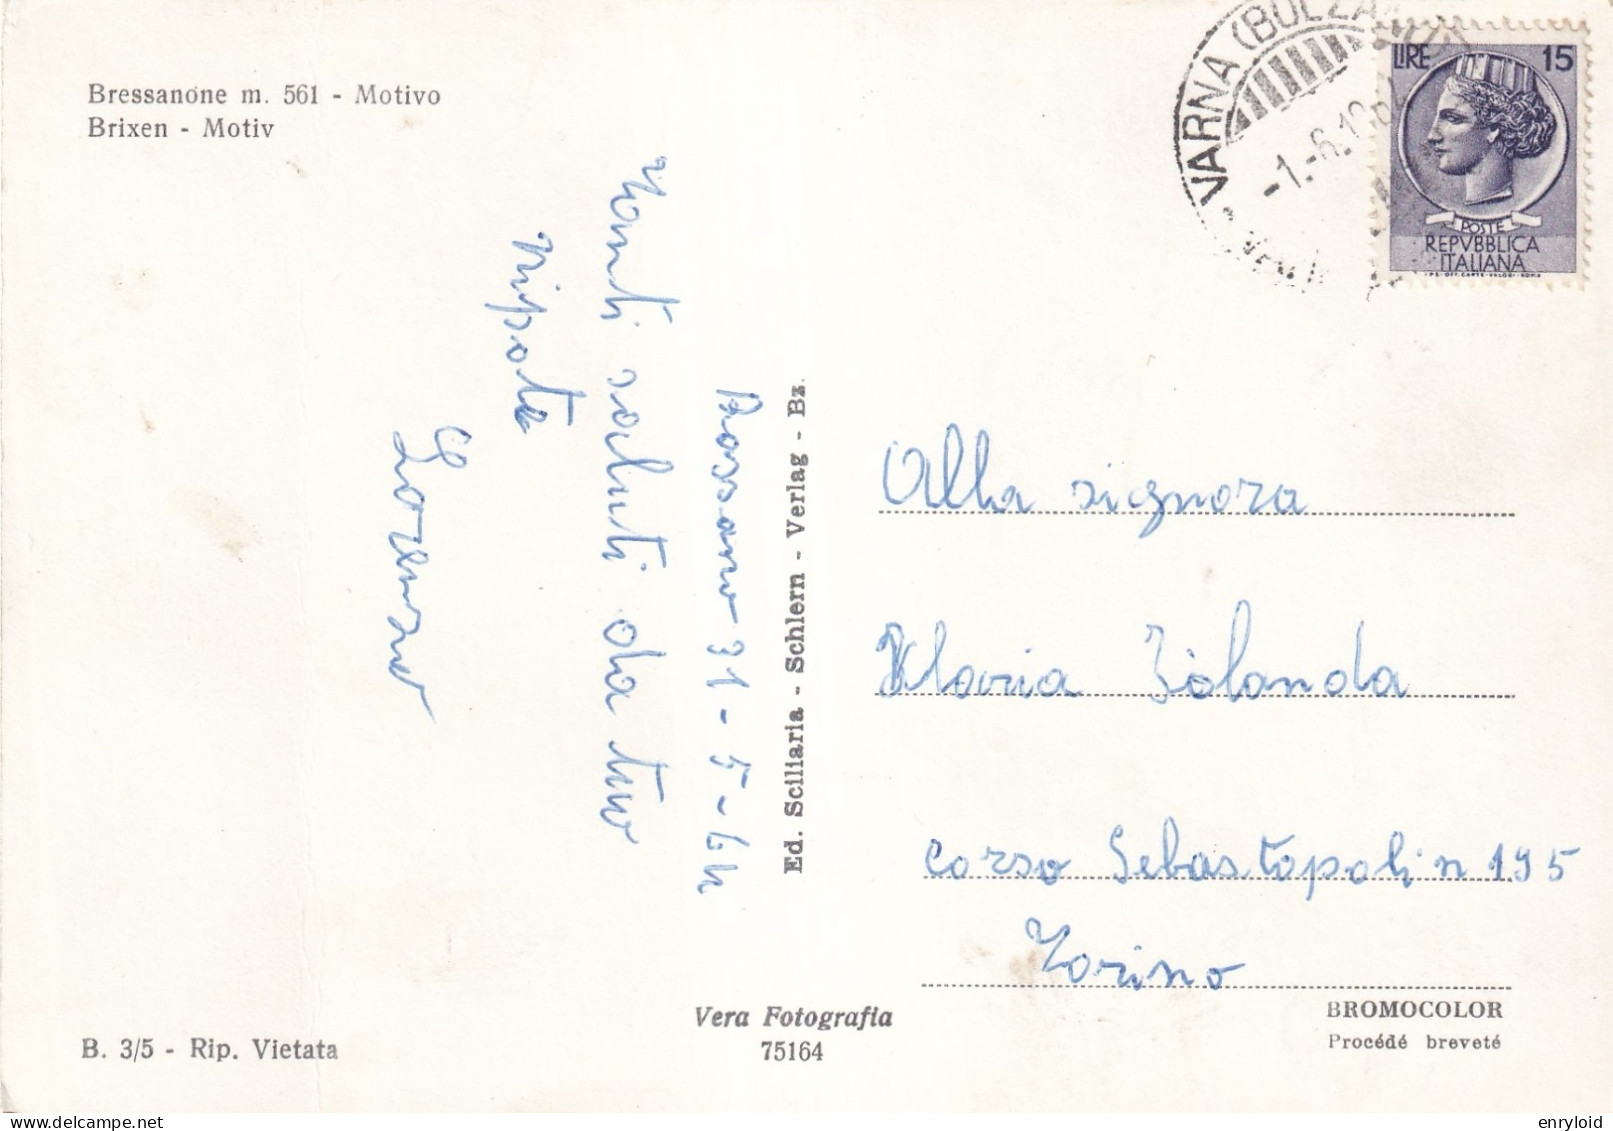 Bressanone m. 561 - Motivo
Brixen - Motiv
VARNA (BOLZANO)
-1.-6.19
LIRE 15
POSTE
REPVBBLICA
ITALIANA
I.P.S. OFF. CARTE-VALORI-ROMA
Bossano 31-5-64
Tanti saluti da tuo
nipote
Lorenzo
Ed. Sciliaria - Schlern - Verlag - Bz.
Alla signora
Iolanda
corso Sebastopoli n 195
Torino
BROMOCOLOR
Procédé breveté
Vera Fotografia
75164
B. 3/5 - Rip. Vietata
enryloid